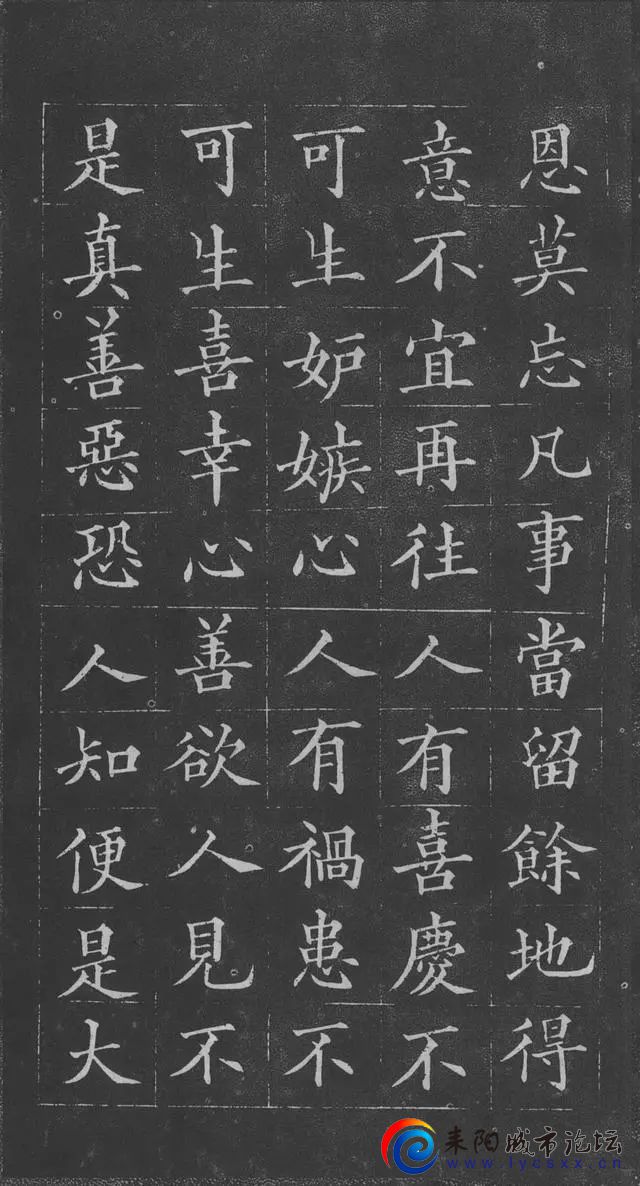 恩莫忘凡事當留餘地得
意不宜再往人有喜慶不
可生妒嫉心人有禍患不
可生喜幸心善欲人見不
是真善惡恐人知便是大
耒阳城市论坛
www.lycsxx.cn